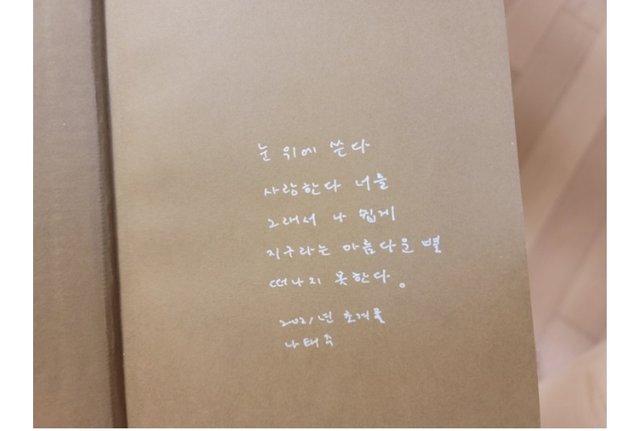 눈 위에 쓴다
사랑한다 너를
그래서 나 쉽게
지구라는 아름다운 별
떠나지 못한다.
2021년 초겨울
나태주